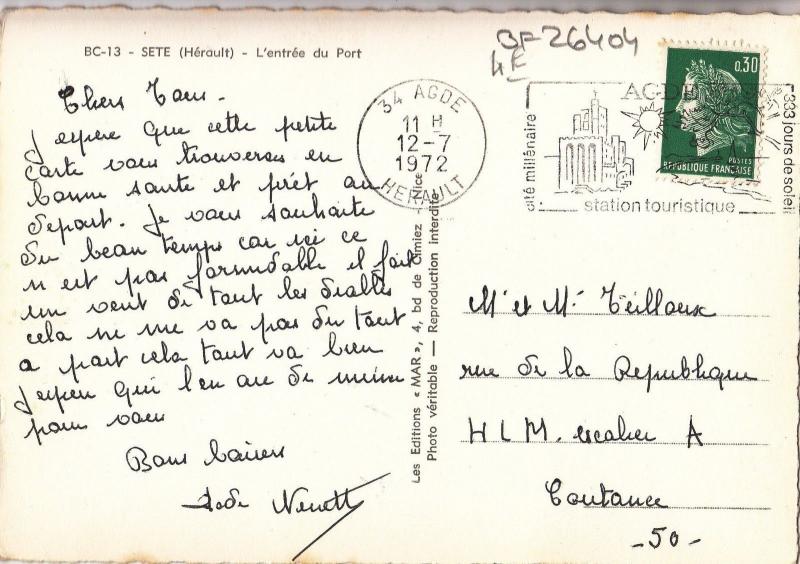 BC-13 - SETE (Hérault) - L'entrée du Port
BF 26404
4E
Chers Tous -
J espère que cette petite
carte vous trouveras en
bonne santé et prêt au
départ. Je vous souhaite
du beau temps car ici ce
n est pas formidable il fait
un vent de tout les diables
cela ne me va pas du tout
a part cela tout va bien
J espère qui l en ai de même
pour vous
Bons baisers
Dédé Nenett
34 AGDE
11 H
12-7
1972
HERAULT
cité millénaire
AGDE
333 jours de soleil
station touristique
0,30
POSTES
REPUBLIQUE FRANÇAISE
Les Editions « MAR », 4, bd de Cimiez, Nice
Photo véritable — Reproduction interdite
Mr et Mr Teilloux
rue de la Republique
H L M. escalier A
Coutance
- 50 -